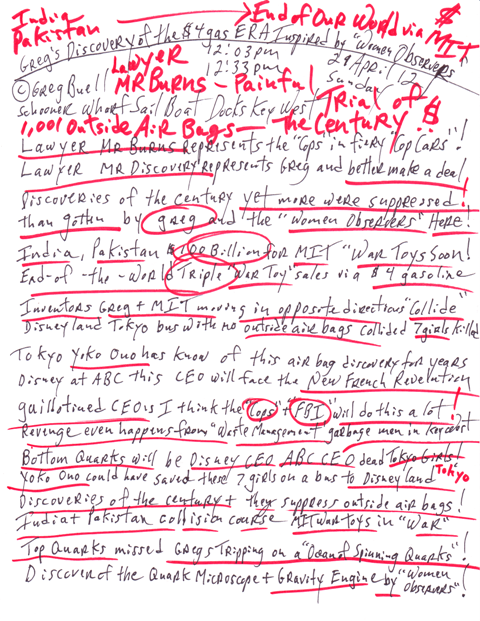 India → End of Our World via $
Pakistan MIT
Greg's Discovery of the $4 gas ERA Inspired by "Women Observers
Lawyer 12:03pm 29 April 12
© Greg Buell MR Burns - Painful 12:33pm Sunday
Schooner Wharf Sail Boat Docks Key West Trial of $
1,001 Outside Air Bags — The Century!!
Lawyer Mr Burns represents the "Cops" in fiery "Cop Cars"!
Lawyer MR Discovery represents Greg and better make a deal
Discoveries of the century yet more were suppressed!
than gotten by greg and the "Women Observers" Here!
India, Pakistan $100 Billion for MIT "War Toys Soon!
End-of-the-World Triple "War Toy" sales via $4 gasoline
Inventors Greg + MIT moving in opposite directions "Collide"
Disneyland Tokyo bus with no outside air bags collided 7 girls killed
Tokyo Yoko Ono has know of this air bag discovery for years
Disney at ABC this CEO will face the New French Revelation
guillotined CEO's I think the "Cops" + "FBI" will do this a lot!
Revenge even happens from "Waste Management" garbage men in key west
Bottom Quarks will be Disney CEO ABC CEO dead Tokyo Girls!
Yoko Ono could have saved these 7 girls on a bus to Disneyland Tokyo
Discoveries of the century + they suppress outside air bags!
India + Pakistan collision course MIT war toys in "War"
Top Quarks missed Gregs Tripping on a "Ocean of Spinning Quarks"!
Discover of the Quark Microscope + Gravity Engine by "Women Observers"!